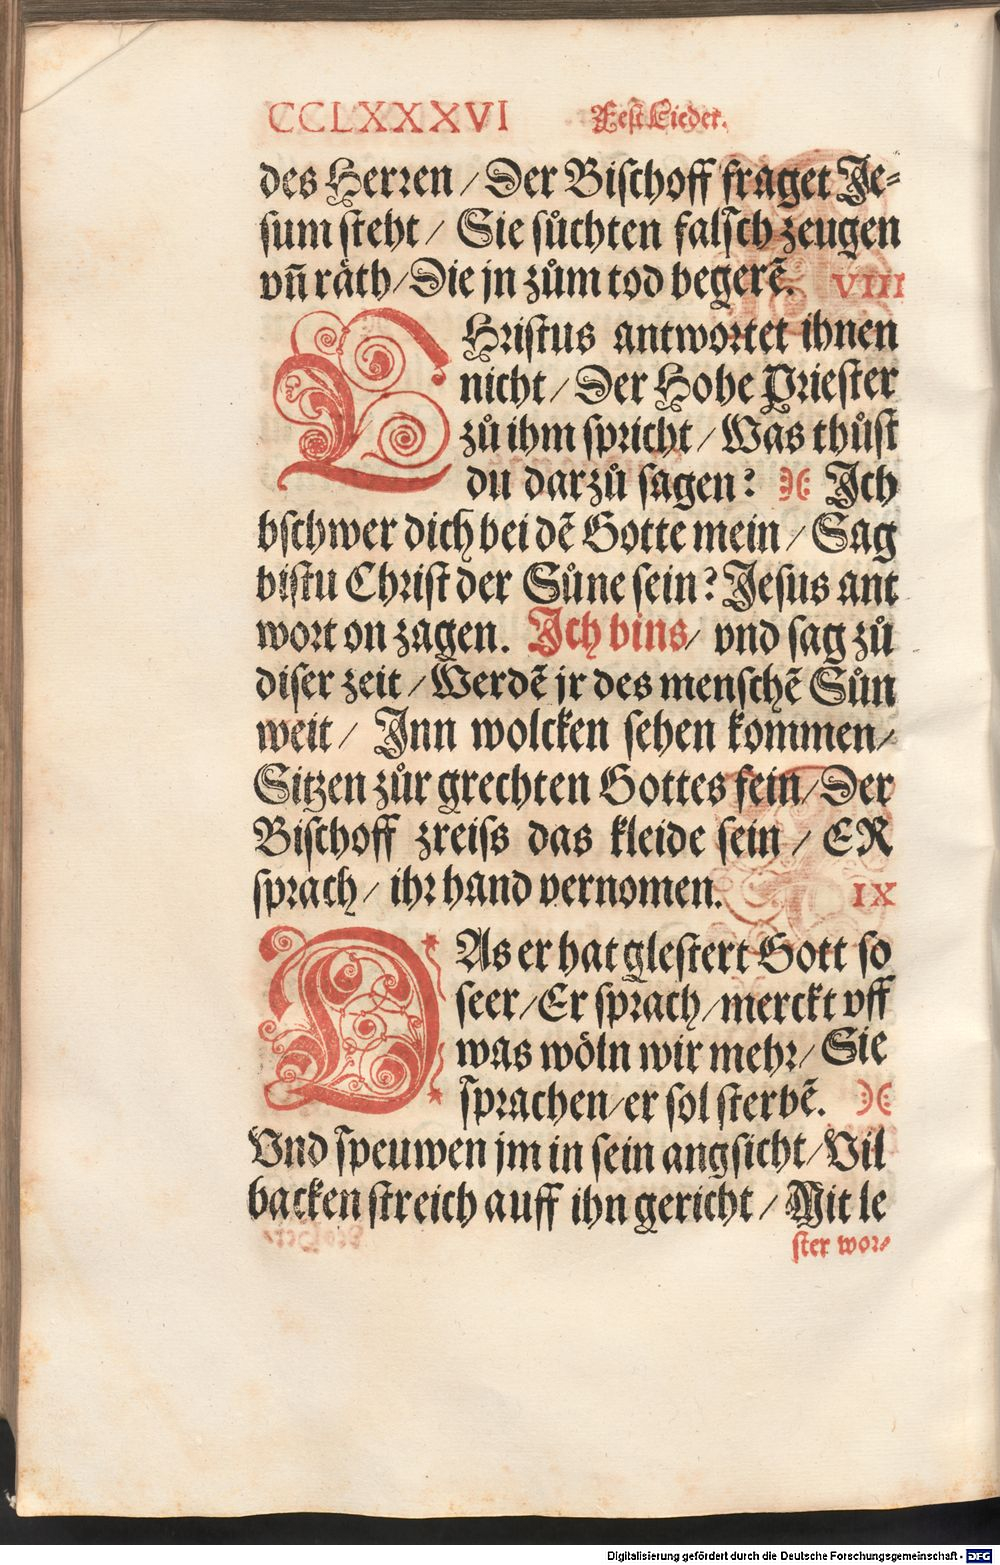 CCLXXXVI Fest Lieder.
des Herren / Der Bischoff fraget Je-
sum steht / Sie sůchten falsch zeugen
vñ räth / Die jn zům tod begerẽ. VIII
CHristus antwortet ihnen
nicht / Der Hohe Priester
zů ihm spricht / Was thůst
du darzů sagen? Ich
bschwer dich bei dẽ Gotte mein / Sag
bistu Christ der Sůne sein? Jesus ant
wort on zagen. Ich bins / vnd sag zů
diser zeit / Werdẽ jr des menschẽ Sůn
weit / Inn wolcken sehen kommen /
Sitzen zůr grechten Gottes fein / Der
Bischoff zreiss das kleide sein / ER
sprach / ihr hand vernomen. IX
DAs er hat glestert Gott so
seer / Er sprach / merckt vff
was wöln wir mehr / Sie
sprachen / er sol sterbẽ.
Vnd speuwen jm in sein angsicht / Vil
backen streich auff ihn gericht / Mit le
ster wor-
Digitalisierung gefördert durch die Deutsche Forschungsgemeinschaft - DFG